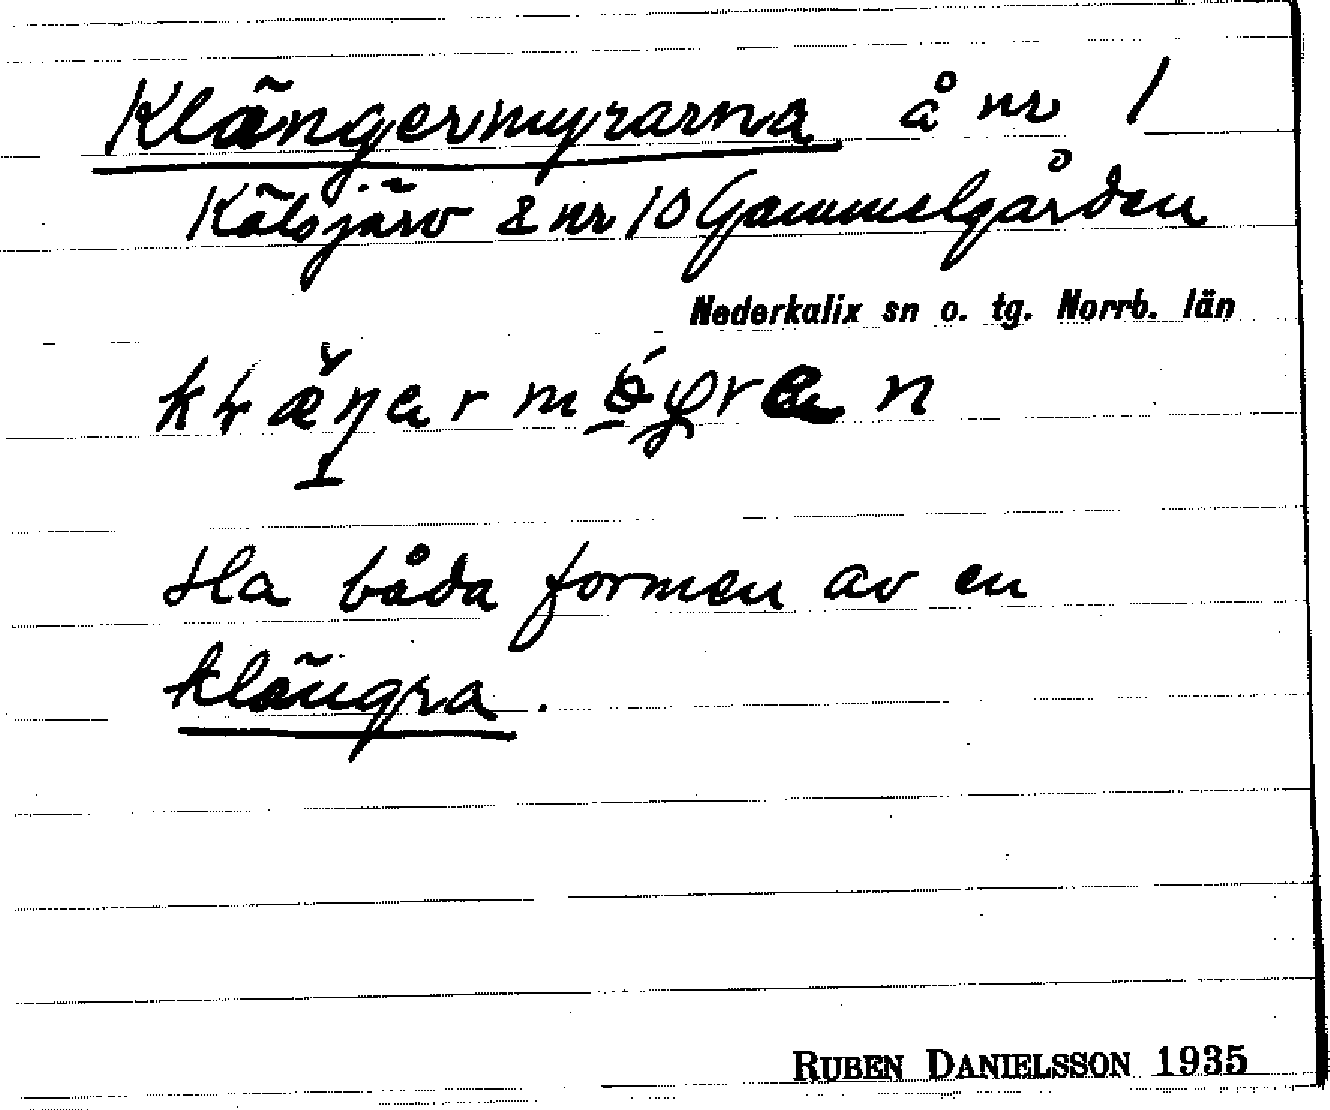 Klängermyrarna å nr 1
Kälsjärv 2 nr 10 Gammelgården
Nederkalix sn o. tg. Norrb. län
Ha båda formen av en
klängra.
RUBEN DANIELSSON 1935